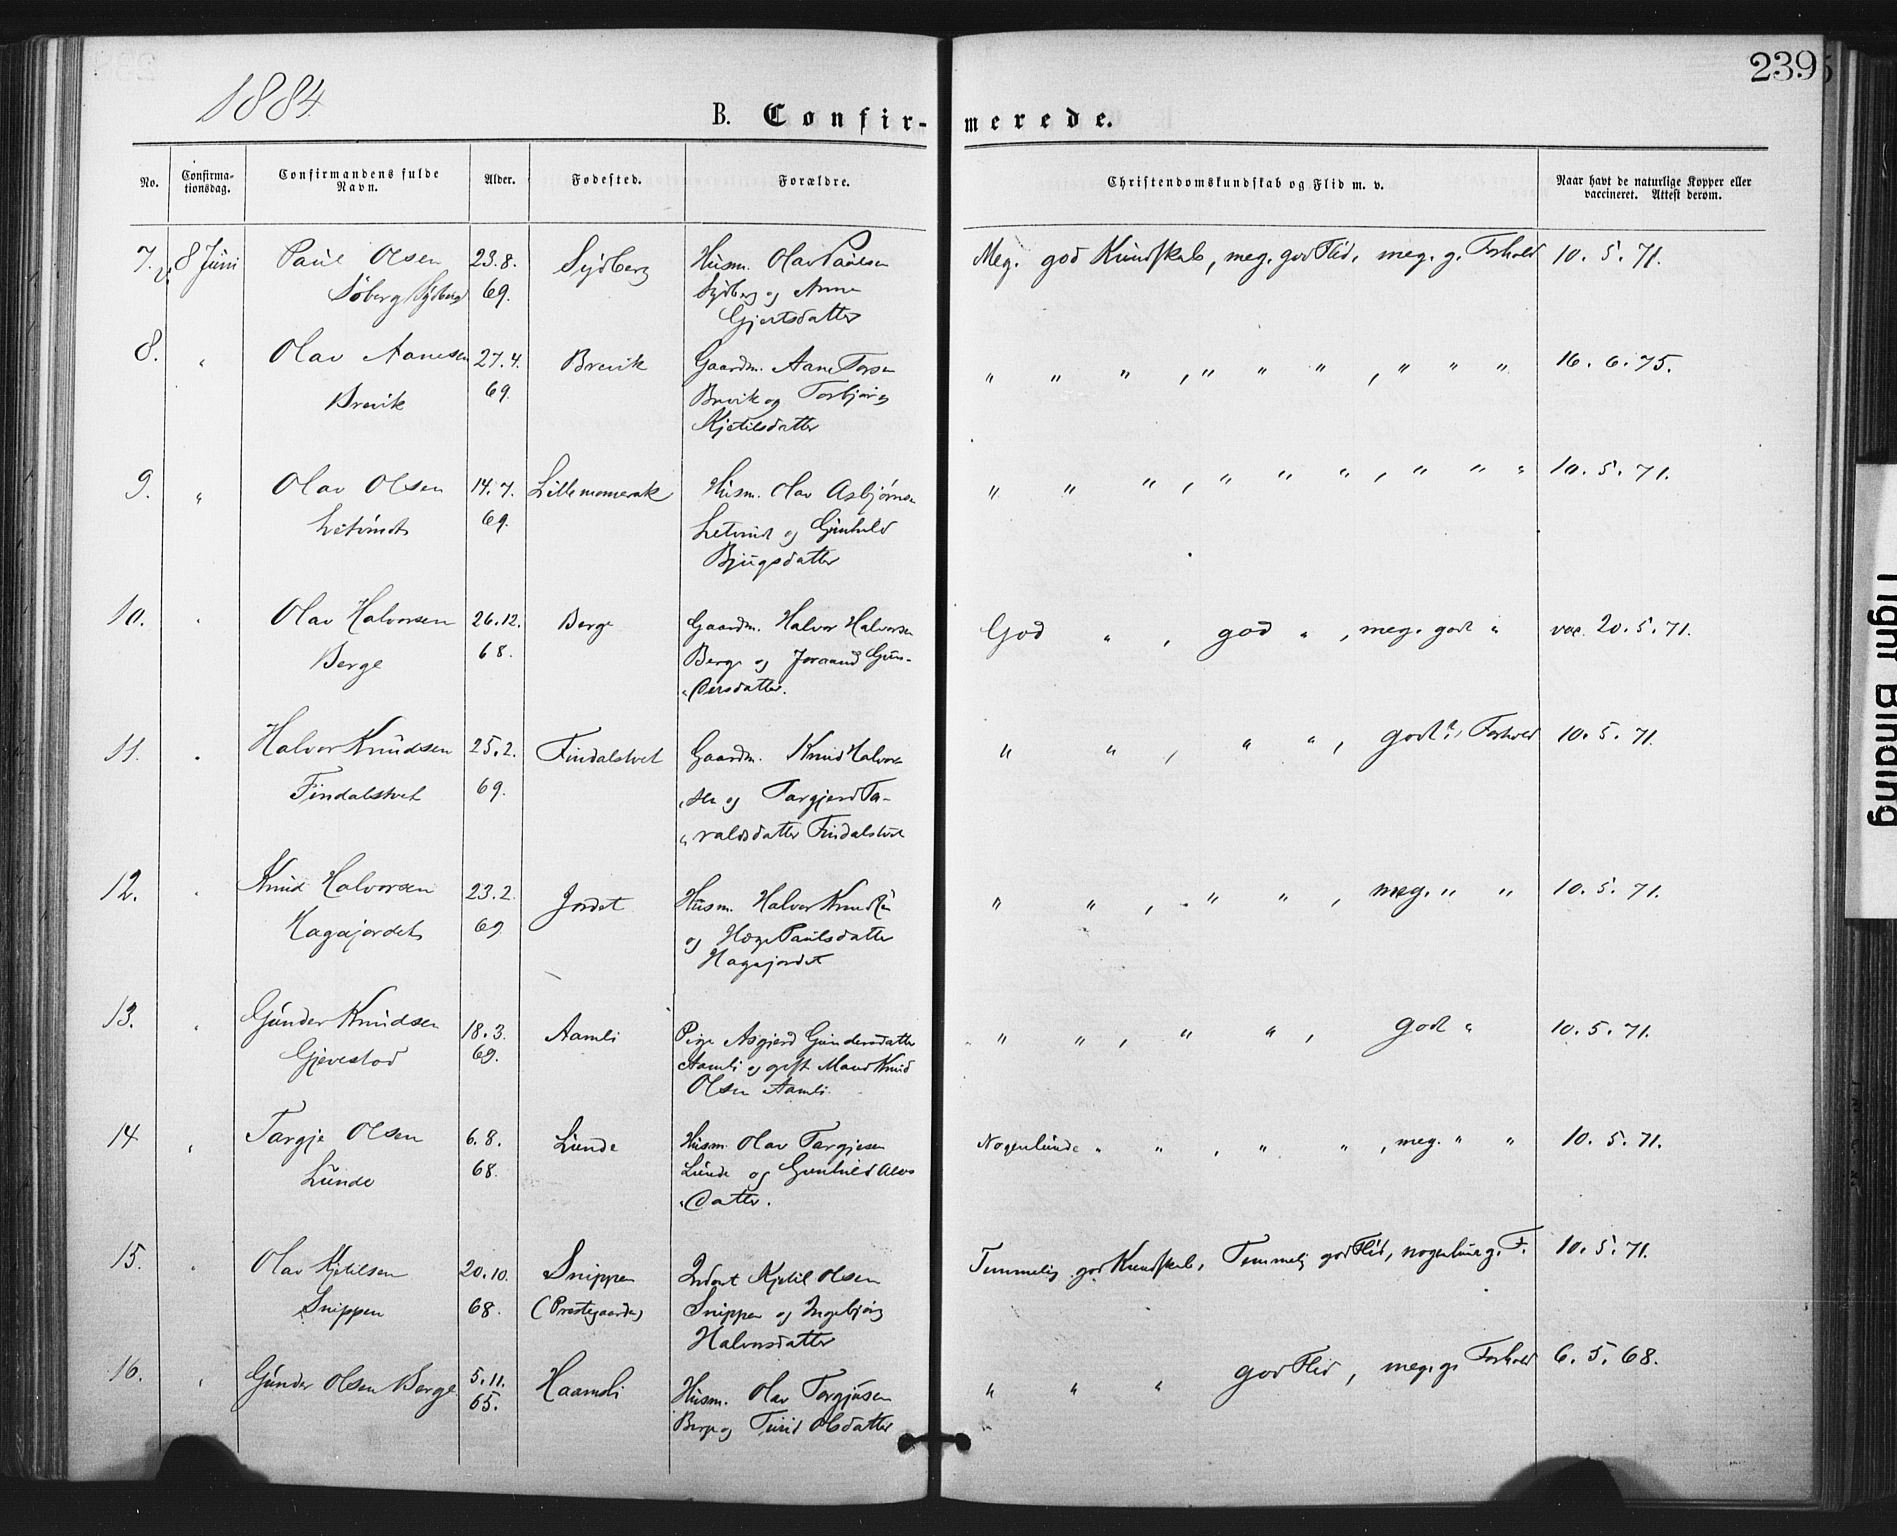 1884
239
B. Confir- merede.
No. Confirma-tionsdag. Confirmandens fulde Navn. Alder. Fødested. Forældre. Christendomskundskab og Flid m. v. Naar havt de naturlige Kopper eller vaccineret. Attest derom.
7. 8 Juni Paul Olsen 23.8. Sydberg Husm. Olav Paulsen Meg. god Kundskab, meg. god Flid, meg. g. Forhold 10. 5. 71.
Søberg (Sydberg) 69. Sydberg og Anne
Gjertsdatter
8. " Olav Aanesen 27.4. Brevik Gaardm. Aane Torsen " " " , " " " , " " " 16. 6. 75.
Brevik 69. Brevik og Torbjørg
Kjetilsdatter
9. " Olav Olsen 14.7. Lillemomerak Husm. Olav Asbjørnsen " " " , " " " , " " " 10. 5. 71.
69. og Gunhild
Bjugsdatter
10. " Olav Halvorsen 26.12. Berge Gaardm. Halvor Halvorsen God " , god " , meg. godt " vac. 20. 5. 71.
Berge 68. Berge og Joraand Gun-
dersdatter.
11. " Halvor Knudsen 25.2. Findalstvet Gaardm. Knud Halvor- " " , " " , godt Forhold 10. 5. 71.
Findalstvet 69. sen og Targjerd Ta-
raldsdatter Findalstvet
12. " Knud Halvorsen 23.2. Jordet Husm. Halvor Knudsen " " , " " , meg. " " 10. 5. 71.
Hagajordet 69 og Hæge Paulsdatter
Hagajordet
13. " Gunder Knudsen 18.3. Aamli Pige Asgjerd Gundersdatter " " , " " , godt " 10. 5. 71.
Gjevestad 69. Aamli og gift Mand Knud
Olsen Aamli.
14 " Targje Olsen 6.8. Lunde Husm. Olav Targjesen Nogenlunde " " , " " , meg. " " 10. 5. 71.
Lunde 68. Lunde og Gunhild Alvs
datter.
15. " Olav Kjetilsen 20.10. Snippen Inderst Kjetil Olsen Temmelig god Kundskab, Temmelig god Flid, nogenlun g. F. 10. 5. 71.
Snippen 68. (Prestegaarden) Snippen og Ingebjørg
Halvorsdatter
16. " Gunder Olsen Berge 5.11. Haamli Husm. Olav Torgjusen " " " god Flid, meg. g. Forhold 6. 5. 68.
65. Berge og Turid Olsdatter
Tight Binding